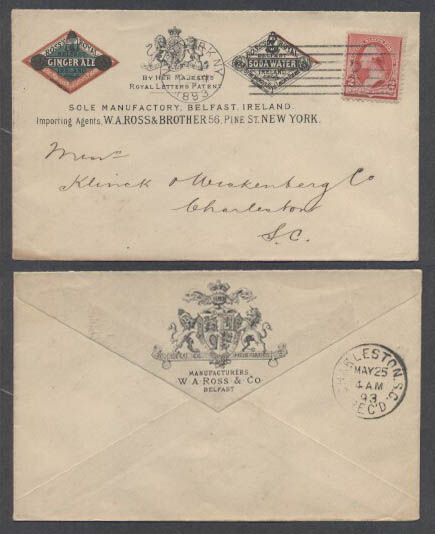 ROSS'S ROYAL
GINGER ALE
SODA WATER
N.Y.
1893
BY HER MAJESTYS
ROYAL LETTERS PATENT
SOLE MANUFACTORY, BELFAST, IRELAND.
Importing Agents, W.A. ROSS & BROTHER 56, PINE ST. NEW YORK.
Messrs
Klinck & Wickenberg Co
Charleston
S.C.
MANUFACTURERS
W. A. ROSS & Co
BELFAST
CHARLESTON, S.C.
MAY 25
4 AM
93
REC'D.